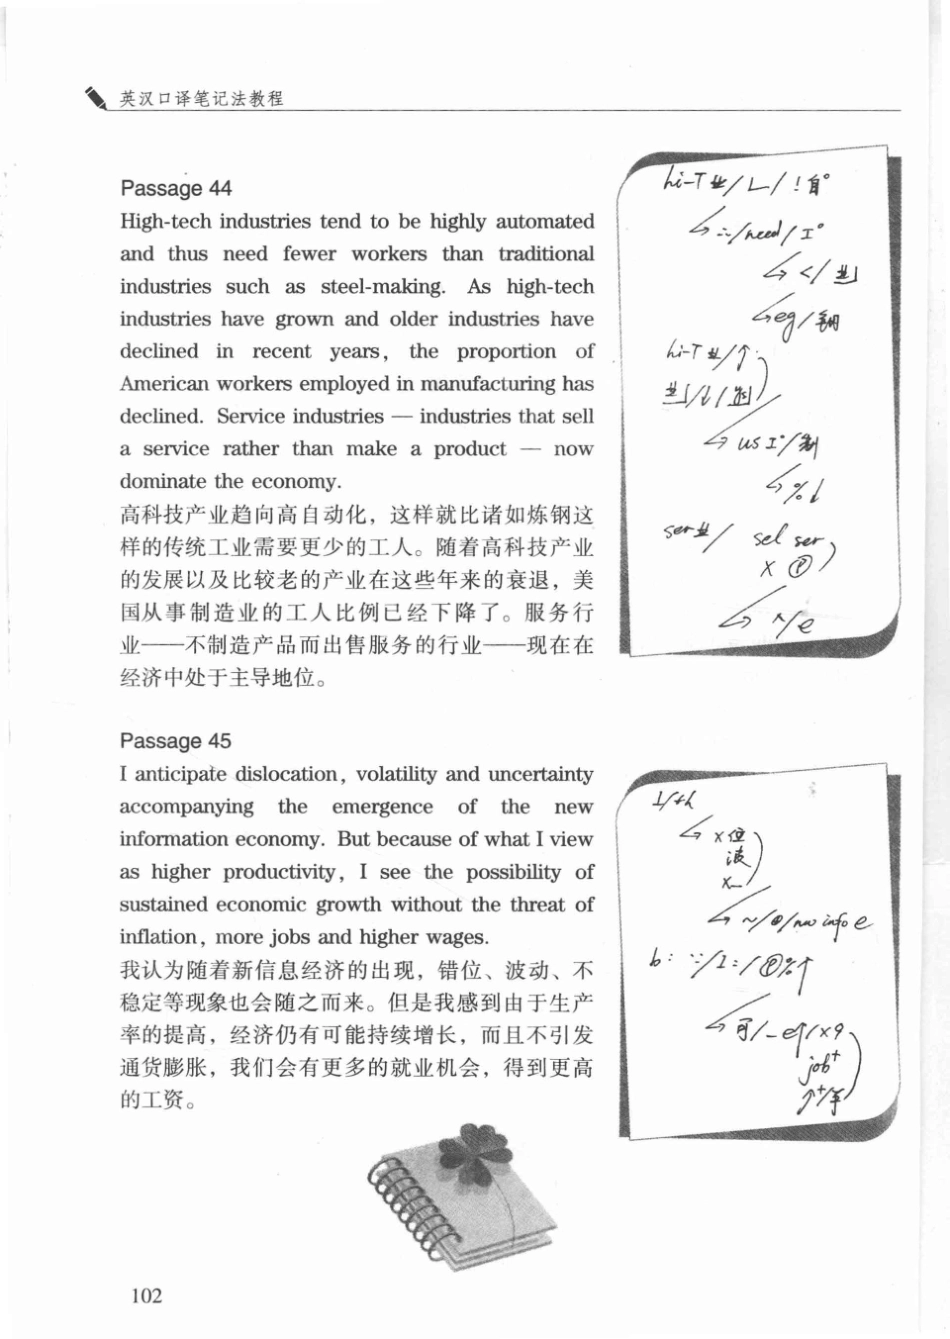 英汉口译笔记法教程
Passage 44
High-tech industries tend to be highly automated
and thus need fewer workers than traditional
industries such as steel-making. As high-tech
industries have grown and older industries have
declined in recent years, the proportion of
American workers employed in manufacturing has
declined. Service industries — industries that sell
a service rather than make a product — now
dominate the economy.
高科技产业趋向高自动化，这样就比诸如炼钢这
样的传统工业需要更少的工人。随着高科技产业
的发展以及比较老的产业在这些年来的衰退，美
国从事制造业的工人比例已经下降了。服务行
业——不制造产品而出售服务的行业——现在在
经济中处于主导地位。
hi-T业/L/!自°
∴/need/I°
</业
eg/钢
hi-T业/↑
us I°/制
%↓
ser业/ sel ser
x Ⓟ
^/e
Passage 45
I anticipate dislocation, volatility and uncertainty
accompanying the emergence of the new
information economy. But because of what I view
as higher productivity, I see the possibility of
sustained economic growth without the threat of
inflation, more jobs and higher wages.
我认为随着新信息经济的出现，错位、波动、不
稳定等现象也会随之而来。但是我感到由于生产
率的提高，经济仍有可能持续增长，而且不引发
通货膨胀，我们会有更多的就业机会，得到更高
的工资。
I/th
x位
波
info e
b: ∵/I:/Ⓟ%↑
可/
job+
102